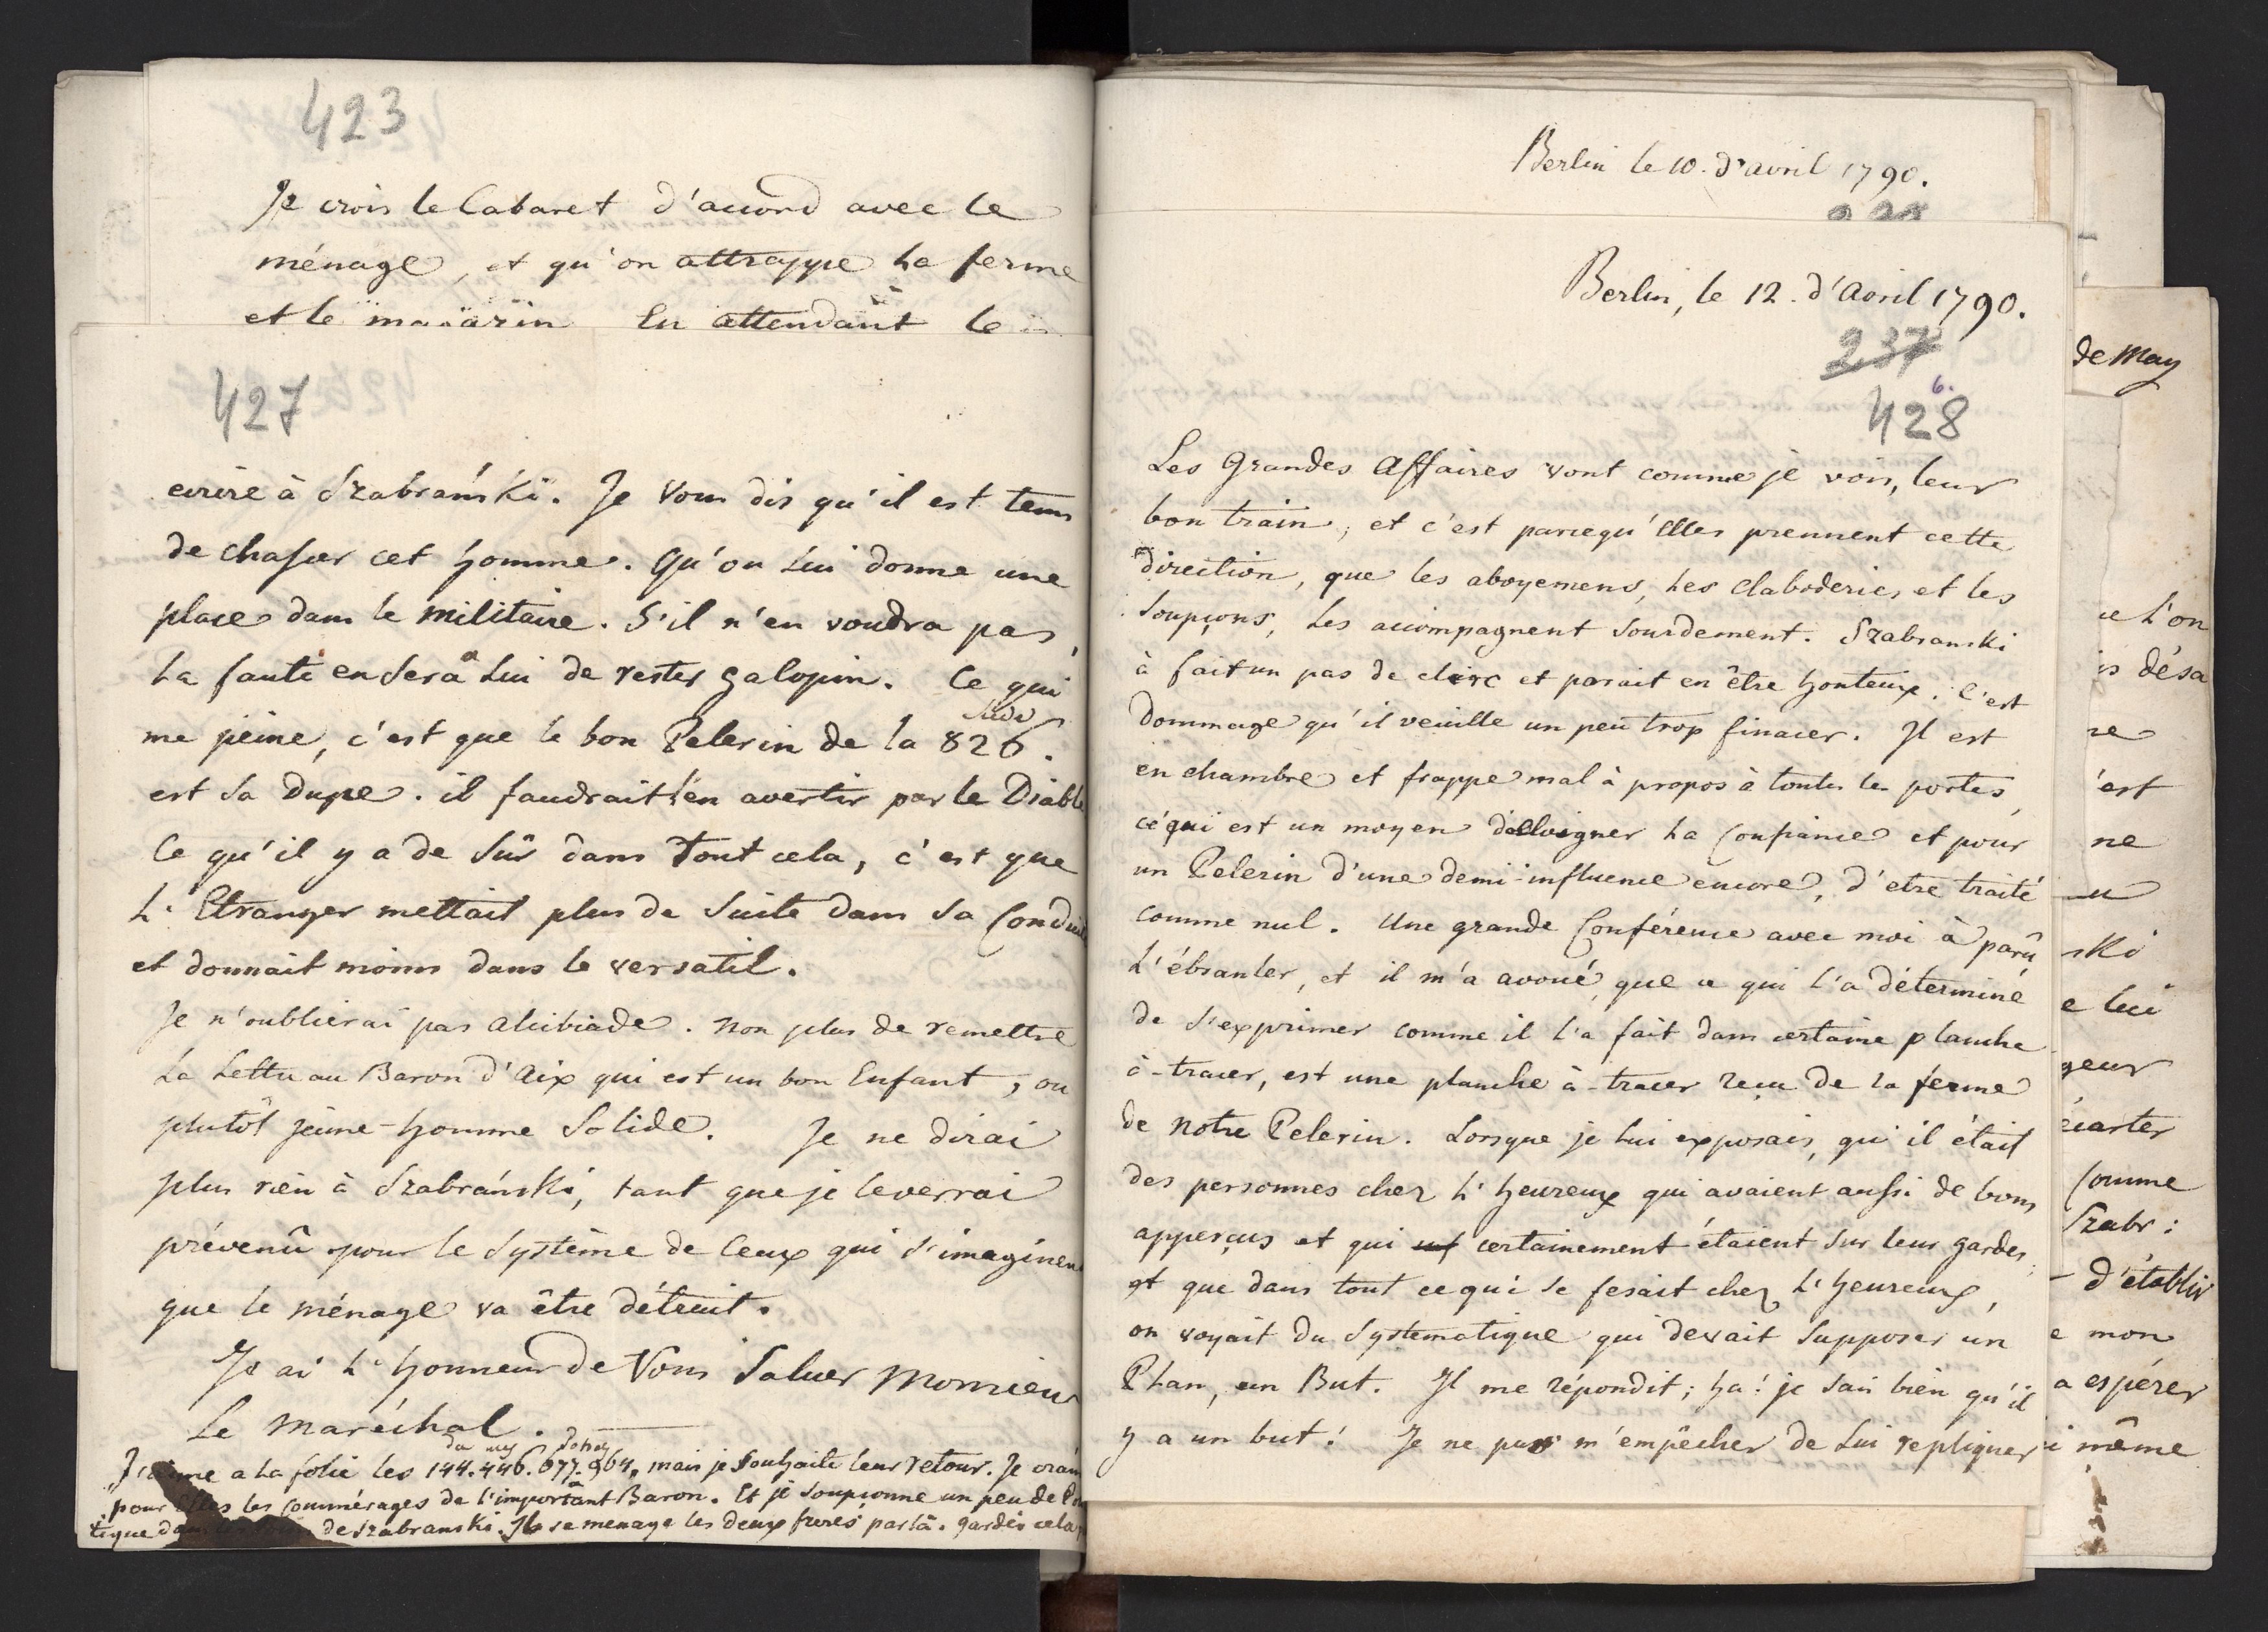 423
Je crois le Cabaret d'accord avec le
ménage, et qu'on attrappe La ferme
et le magazin En attendant le
427
ecrire à Szabrański. Je Vous dis qu'il est tems
de chasser cet homme. Qu'on Lui donne une
place dans le militaire. S'il n'en voudra pas,
La faute en Sera à Lui de rester galopin. Ce qui
me peine, c'est que le bon Pelerin de la 826.
est Sa Dupe. il faudrait l'en avertir par le Diable
Ce qu'il y a de Sûr dans Tout cela, c'est que
L'Etranger mettait plus de Suite dans Sa Conduite
et donnait moins dans le versatil.
Je n'oublierai pas Alcibiade. Non plus de remettre
La Lettre au Baron d'Aix qui est un bon Enfant, ou
plutôt jeune-homme Solide. Je ne dirai
plus rien à Szabrański, tant que je le verrai
prévenû pour le Systême de Ceux qui s'imaginent
que le ménage va être détruit.
Je ai L'honneur de Vous Saluer Monsieur
Le Maréchal.
J'aime a La folie les 144. 446. 677. 964, mais je Souhaite leur retour. Je crains
pour Elles les Commérages de l'important Baron. Et je Soupçonne un peu de
tique dans de Szabranski. Il se menage les deux freres par là. gardés cela
Berlin le 10. d'avril 1790.
Berlin, le 12. d'Avril 1790.
237
6.
428
Les Grandes Affaires vont comme je vois, leur
bon train, et c'est parcequ'Elles prennent cette
direction, que les aboyemens, Les Claboderies et les
Soupçons, Les accompagnent Sourdement. Szabranski
à fait un pas de clerc et parait en être honteux. C'est
Dommage qu'il veuille un peu trop finacer. Il est
en chambre et frappe mal à propos à toutes les portes,
ce qui est un moyen d'elloigner La Confiance et pour
un Pelerin d'une demi-influence encore, d'etre traité
comme nul. Une grande Conférence avec moi à parû
L'ébranler, et il m'a avoué, que ce qui l'a déterminé
de S'exprimer comme il l'a fait dans certaine planche
à-tracer, est une planche à-tracer reçu de la ferme
de Notre Pelerin. Lorsque je Lui exposais, qu'il était
des personnes chez L'heureux qui avaient aussi de bons
apperçus et qui certainement étaient Sur leur gardes,
et que dans tout ce qui se fesait chez L'heureux,
on voyait du Systematique qui devait Supposer un
Plan, un But. Il me répondit; ha! je Sais bien qu'il
y a un but! Je ne pus m'empêcher de Lui repliquer
de May
ce l'on
is désa
re
'est
ne
u
ski
e lui
geur
écarter
Comme
Szabr:
d'établir
e mon
a espérer
i même